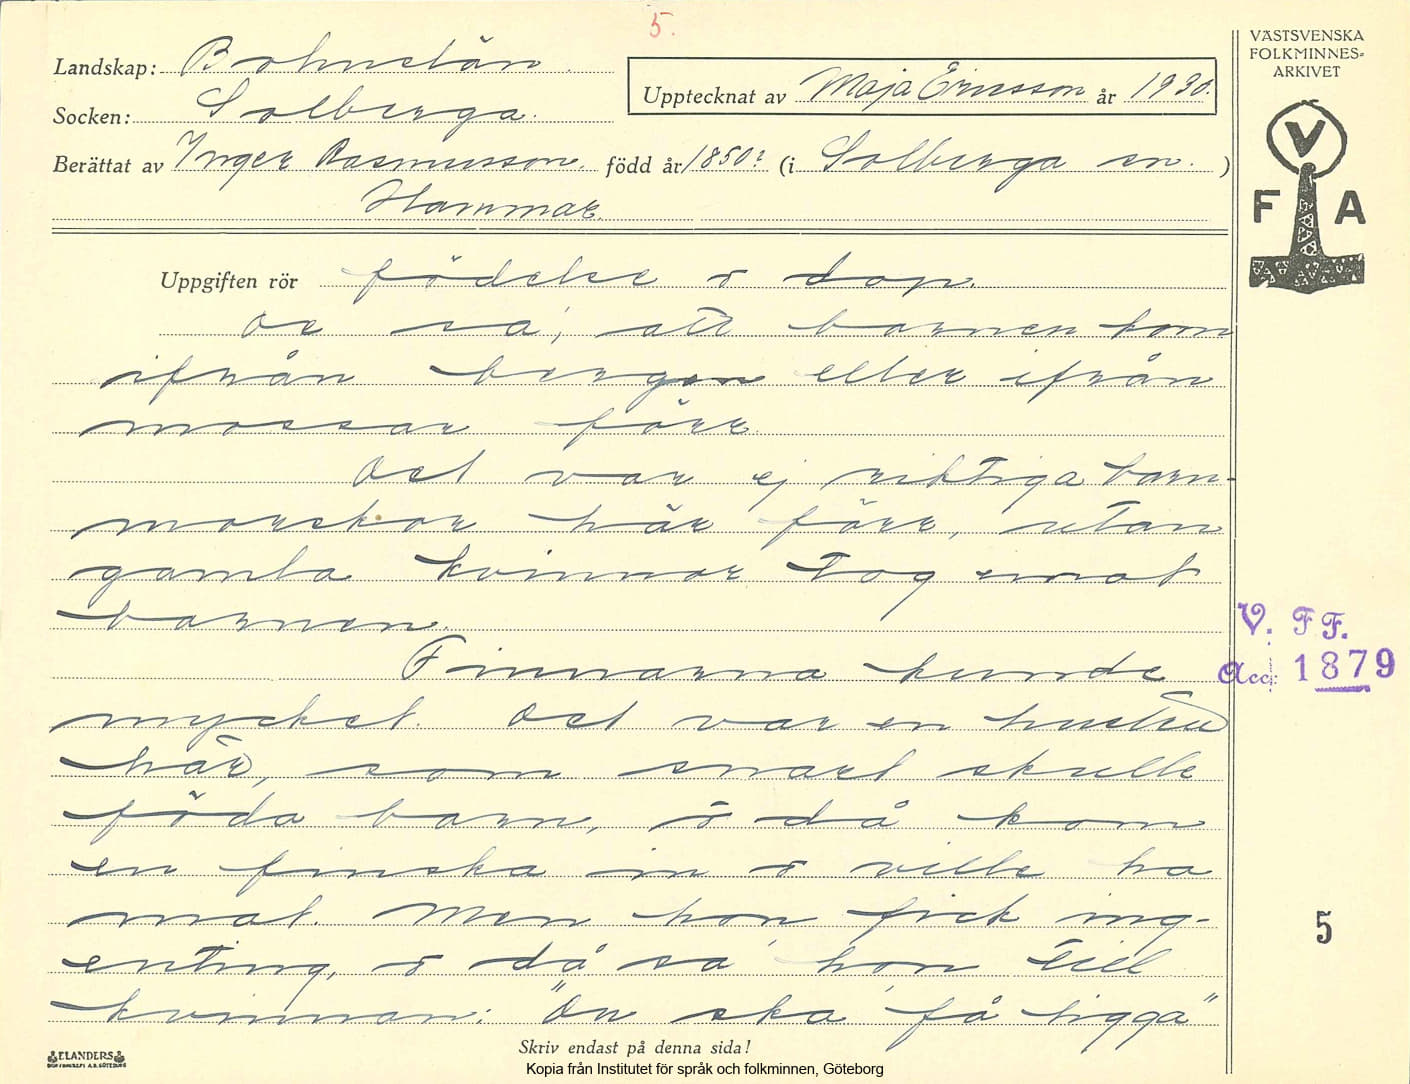 5.
Landskap: Bohuslän
Socken: Solberga.
Upptecknat av Maja Ericsson år 1930.
Berättat av Inger Rasmusson. född år 1850? (i Solberga sn. )
Hammar.
VÄSTSVENSKA
FOLKMINNES=
ARKIVET
V
F A
Uppgiften rör födelse o dop.
De sa', att barnen kom
ifrån bergen eller ifrån
mossar förr.
Det var ej riktiga barn-
morskor här förr, utan
gamla kvinnor tog emot
barnen.
Finnarna kunde
mycket. Det var en hustru
här, som snart skulle
föda barn, o då kom
en finska in o ville ha
mat. Men hon fick ing-
enting, o då sa' hon till
kvinnan: "Du ska få ligga"
V. F F.
Acc: 1879
5
ELANDERS
Skriv endast på denna sida!
Kopia från Institutet för språk och folkminnen, Göteborg